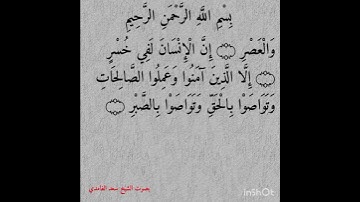 بِسْمِ اللَّهِ الرَّحْمَنِ الرَّحِيمِ
وَالْعَصْرِ ۝ إِنَّ الْإِنْسَانَ لَفِي خُسْرٍ
۝ إِلَّا الَّذِينَ آمَنُوا وَعَمِلُوا الصَّالِحَاتِ
وَتَوَاصَوْا بِالْحَقِّ وَتَوَاصَوْا بِالصَّبْرِ ۝
بصوت الشيخ سعد الغامدي
InShOt